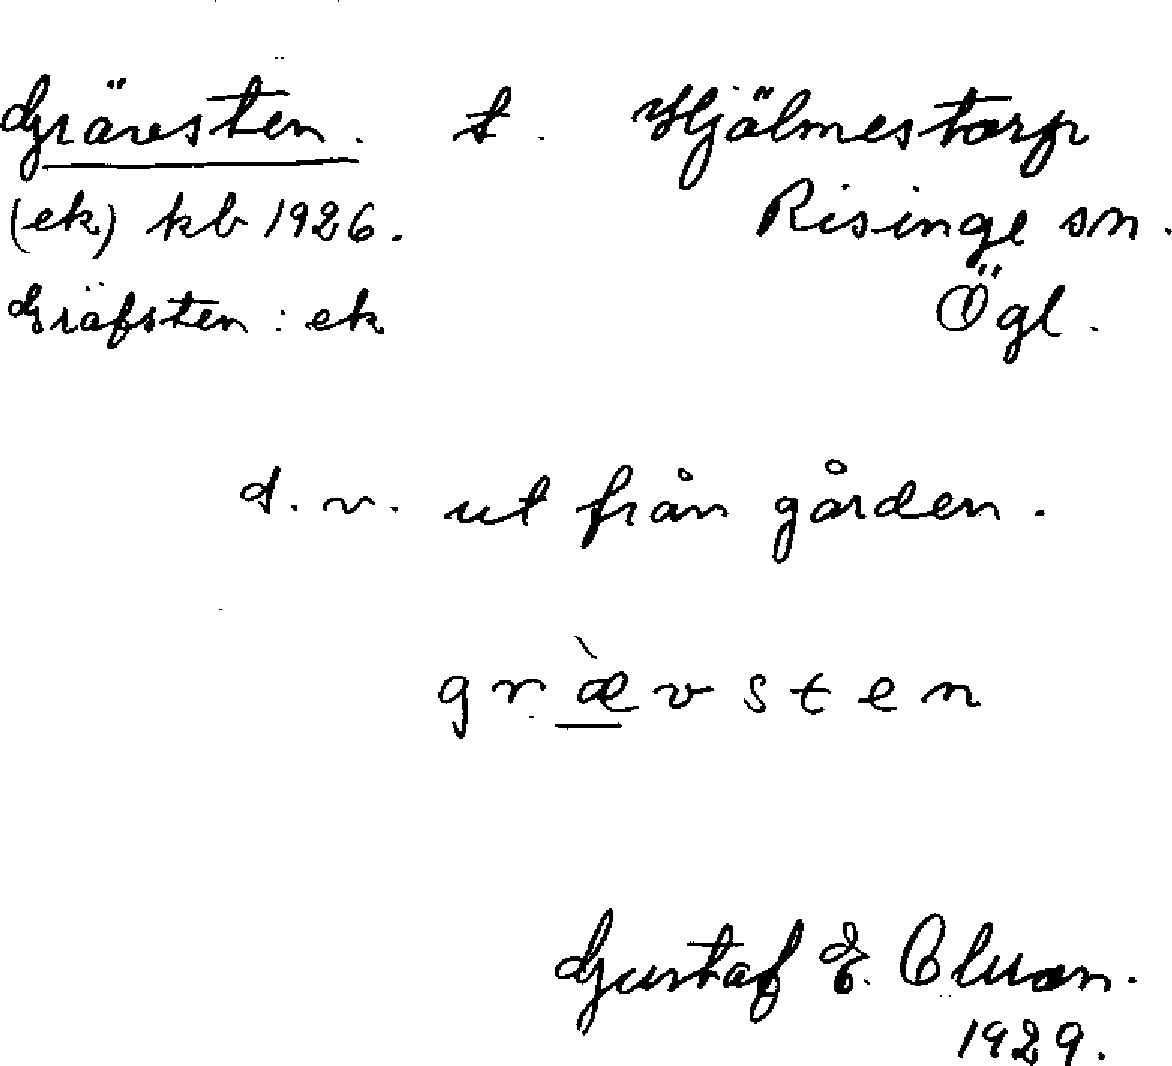 Grävsten. t. Hjälmestorp
(ek) kb 1926. Risinge sn.
Gräfsten : ek Ögl.
d. v. ut från gården.
gr æ̀ v s t e n
Gustaf E. Cluon.
1929.